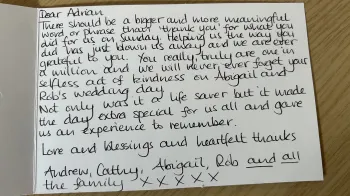 Dear Adrian
There should be a bigger and more meaningful
word or phrase than 'thank you' for what you
did for us on Sunday. Helping us the way you
did has just blown us away and we are ever
grateful to you. You really, truly are one in
a million and we will never, ever forget your
selfless act of kindness on Abigail and
Rob's wedding day.
Not only was it a life saver but it made
the day extra special for us all and gave
us an experience to remember.
Love and blessings and heartfelt thanks
Andrew, Cathy, Abigail, Rob and all
the family X X X X X